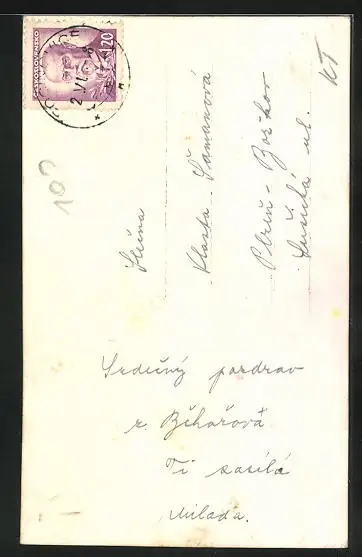 ČESKOSLOVENSKO
1'20
2.VI.
KT
10?
Slečna
Vlasta Šamanová
Plzeň - Božkov
Lušická ul.
Srdečný pozdrav
z Běhařova
Ti zasílá
Milada.